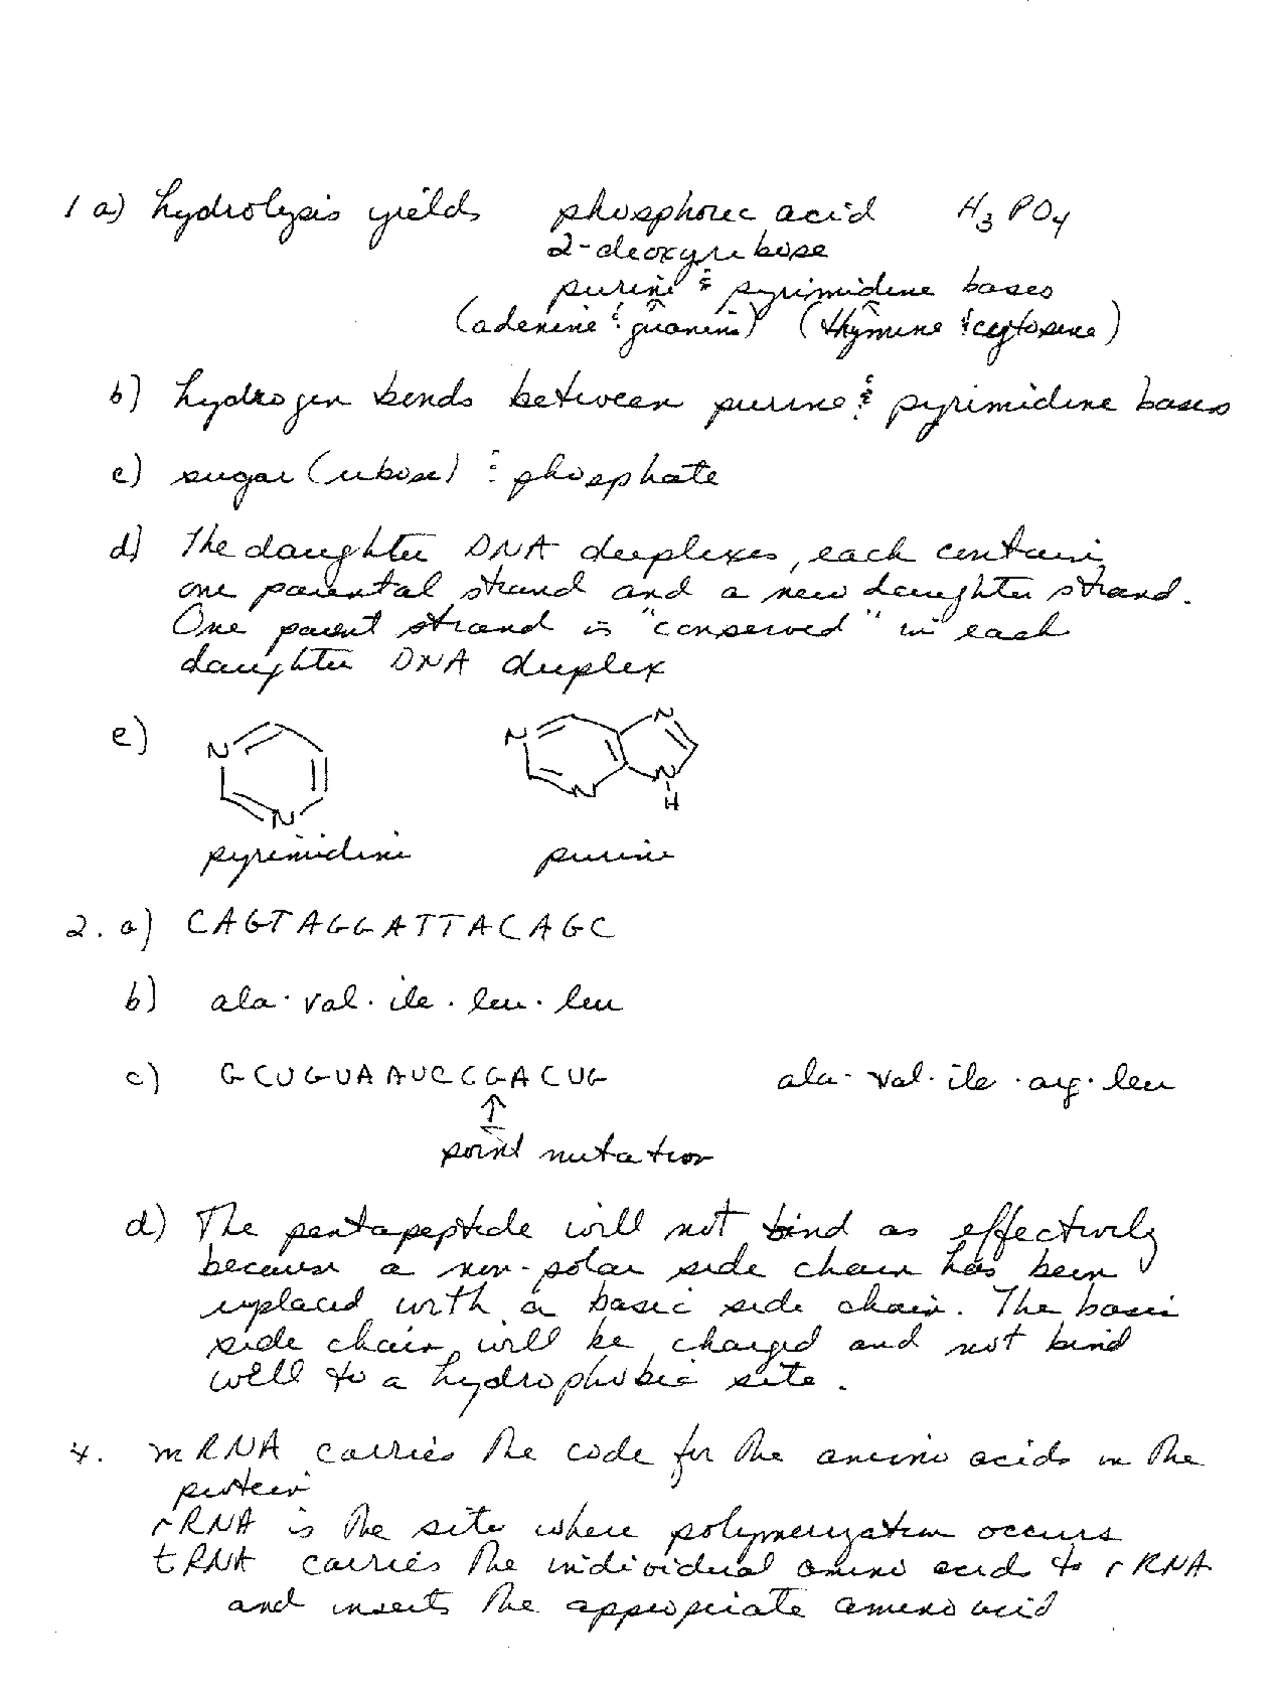 1 a) hydrolysis yields phosphoric acid H3PO4
2-deoxyribose
purine & pyrimidine bases
(adenine & guanine) (thymine & cytosine)
b) hydrogen bonds between purine & pyrimidine bases
c) sugar (ribose) & phosphate
d) The daughter DNA duplexes, each contain
one parental strand and a new daughter strand.
One parent strand is "conserved" in each
daughter DNA duplex
e) N N N N N N H
pyrimidine purine
2. a) CAGTAGGATTACAGC
b) ala · val · ile · leu · leu
c) GCUGUAAUCCGACUG ala · val · ile · arg · leu
point mutation
d) The pentapeptide will not bind as effectively
because a non-polar side chain has been
replaced with a basic side chain. The basic
side chain will be charged and not bind
well to a hydrophobic site.
4. mRNA carries the code for the amino acids in the
protein
rRNA is the site where polymerization occurs
tRNA carries the individual amino acids to rRNA
and inserts the appropriate amino acid